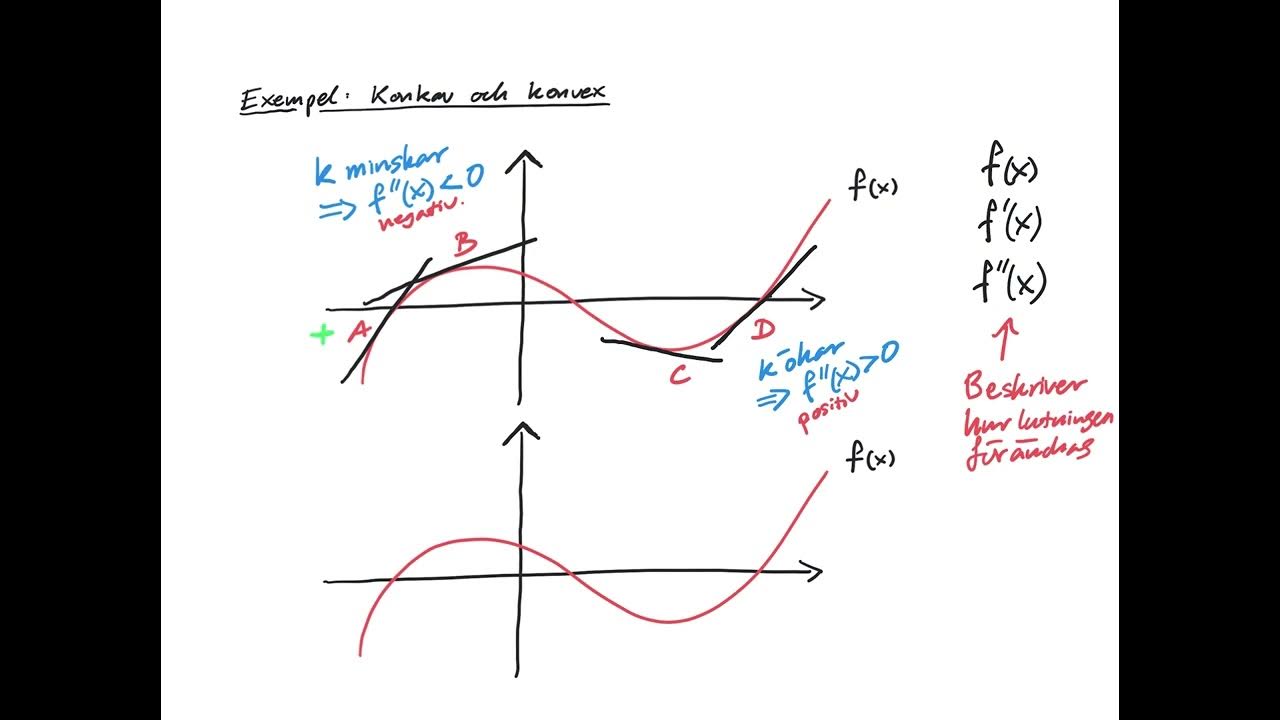 Exempel: Konkav och konvex
k minskar
⇒ f''(x) < 0
negativ.
B
A
+
f(x)
C
D
k ökar
⇒ f''(x) > 0
positiv
f(x)
f'(x)
f''(x)
↑
Beskriver
hur lutningen
förändras
f(x)